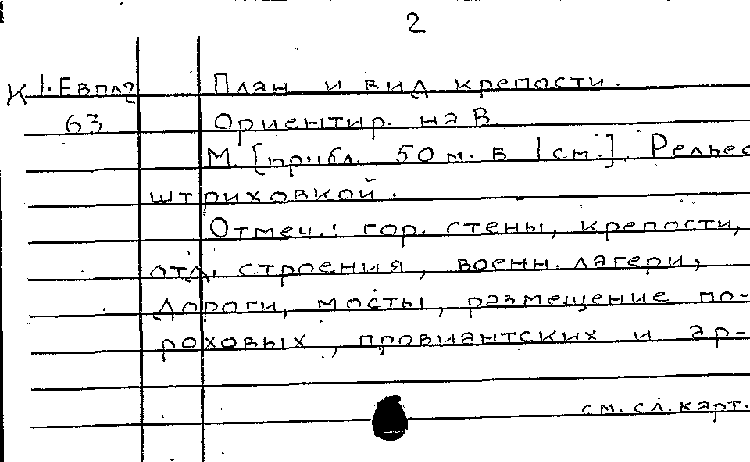 2
К 1-Евпаг План и вид крепости.
63 Ориентир. на В
М. [прибл. 50 м. в 1 см.]. Рельеф
штриховкой.
Отмеч.: гор. стены, крепости,
отд. строения, военн. лагери,
дороги, мосты, размещение по-
роховых, провиантских и ар-
см. сл. карт.